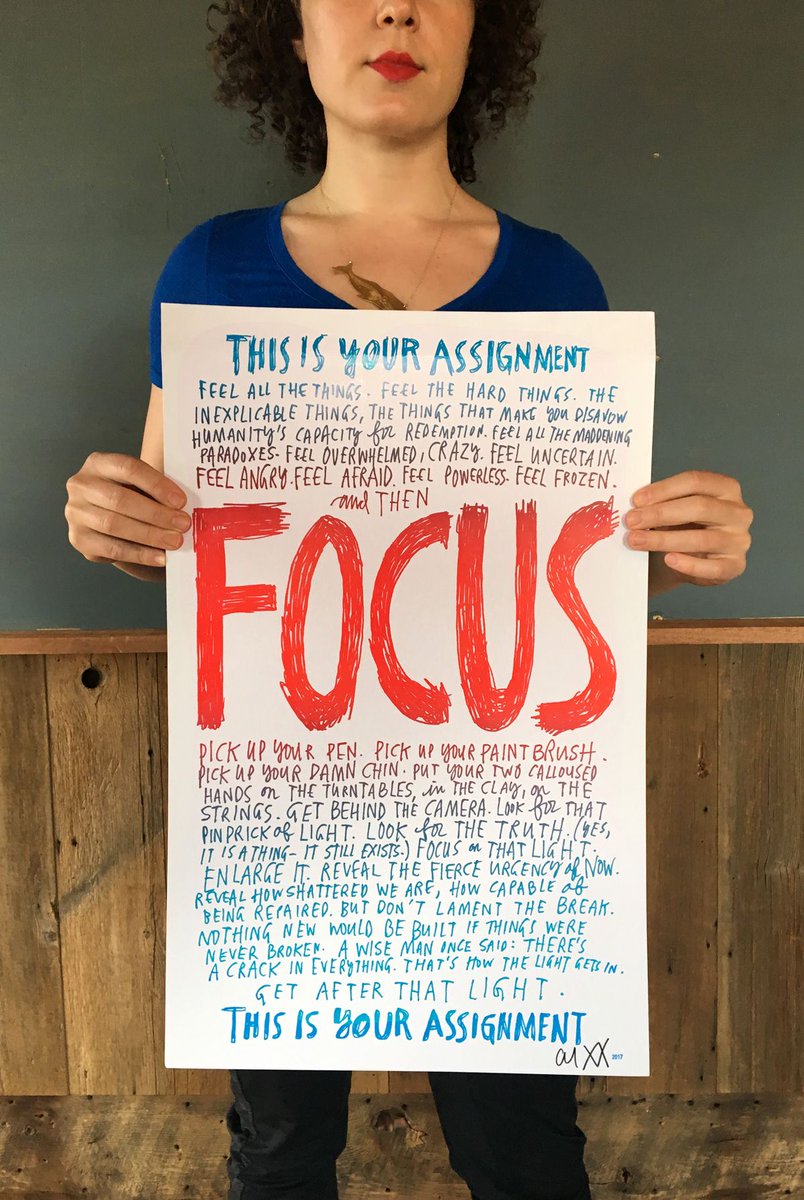 THIS IS YOUR ASSIGNMENT
FEEL ALL THE THINGS. FEEL THE HARD THINGS. THE
INEXPLICABLE THINGS, THE THINGS THAT MAKE YOU DISAVOW
HUMANITY'S CAPACITY for REDEMPTION. FEEL ALL THE MADDENING
PARADOXES. FEEL OVERWHELMED, CRAZY. FEEL UNCERTAIN.
FEEL ANGRY. FEEL AFRAID. FEEL POWERLESS. FEEL FROZEN.
and THEN
FOCUS
PICK UP YOUR PEN. PICK UP YOUR PAINTBRUSH.
PICK UP YOUR DAMN CHIN. PUT YOUR TWO CALLOUSED
HANDS on THE TURNTABLES, in THE CLAY, on THE
STRINGS. GET BEHIND THE CAMERA. LOOK for THAT
PINPRICK of LIGHT. LOOK for THE TRUTH. (YES,
IT IS A THING – IT STILL EXISTS.) FOCUS on THAT LIGHT.
ENLARGE IT. REVEAL THE FIERCE URGENCY of NOW.
REVEAL HOW SHATTERED WE ARE, HOW CAPABLE of
BEING REPAIRED. BUT DON'T LAMENT THE BREAK.
NOTHING NEW WOULD BE BUILT IF THINGS WERE
NEVER BROKEN. A WISE MAN ONCE SAID: THERE'S
A CRACK IN EVERYTHING. THAT'S HOW THE LIGHT GETS IN.
GET AFTER THAT LIGHT.
THIS IS YOUR ASSIGNMENT
XX 2017